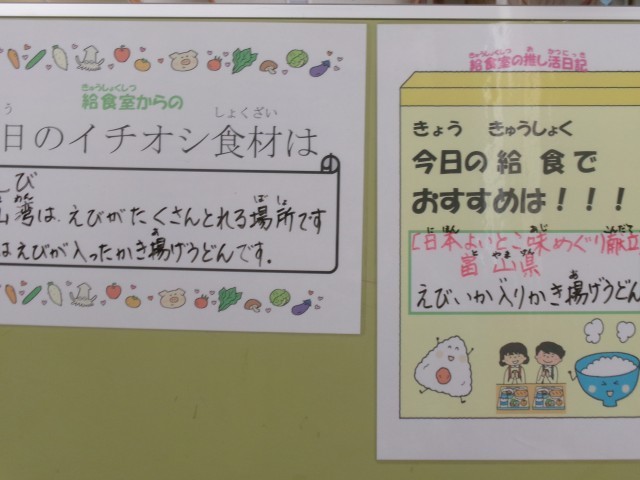 きゅうしょくしつ
給食室からの
しょくざい
日のイチオシ食材は
び
湾は、えびがたくさんとれる場所です
はえびが入ったかき揚げうどんです.
きゅうしょくしつ お かつにっき
給食室の推し活日記
きょう きゅうしょく
今日の給食で
おすすめは!!!
にほん あじ こんだて
[日本よいとこ味めぐり献立
とやまけん
富山県
えびいか入りかき揚げうどん